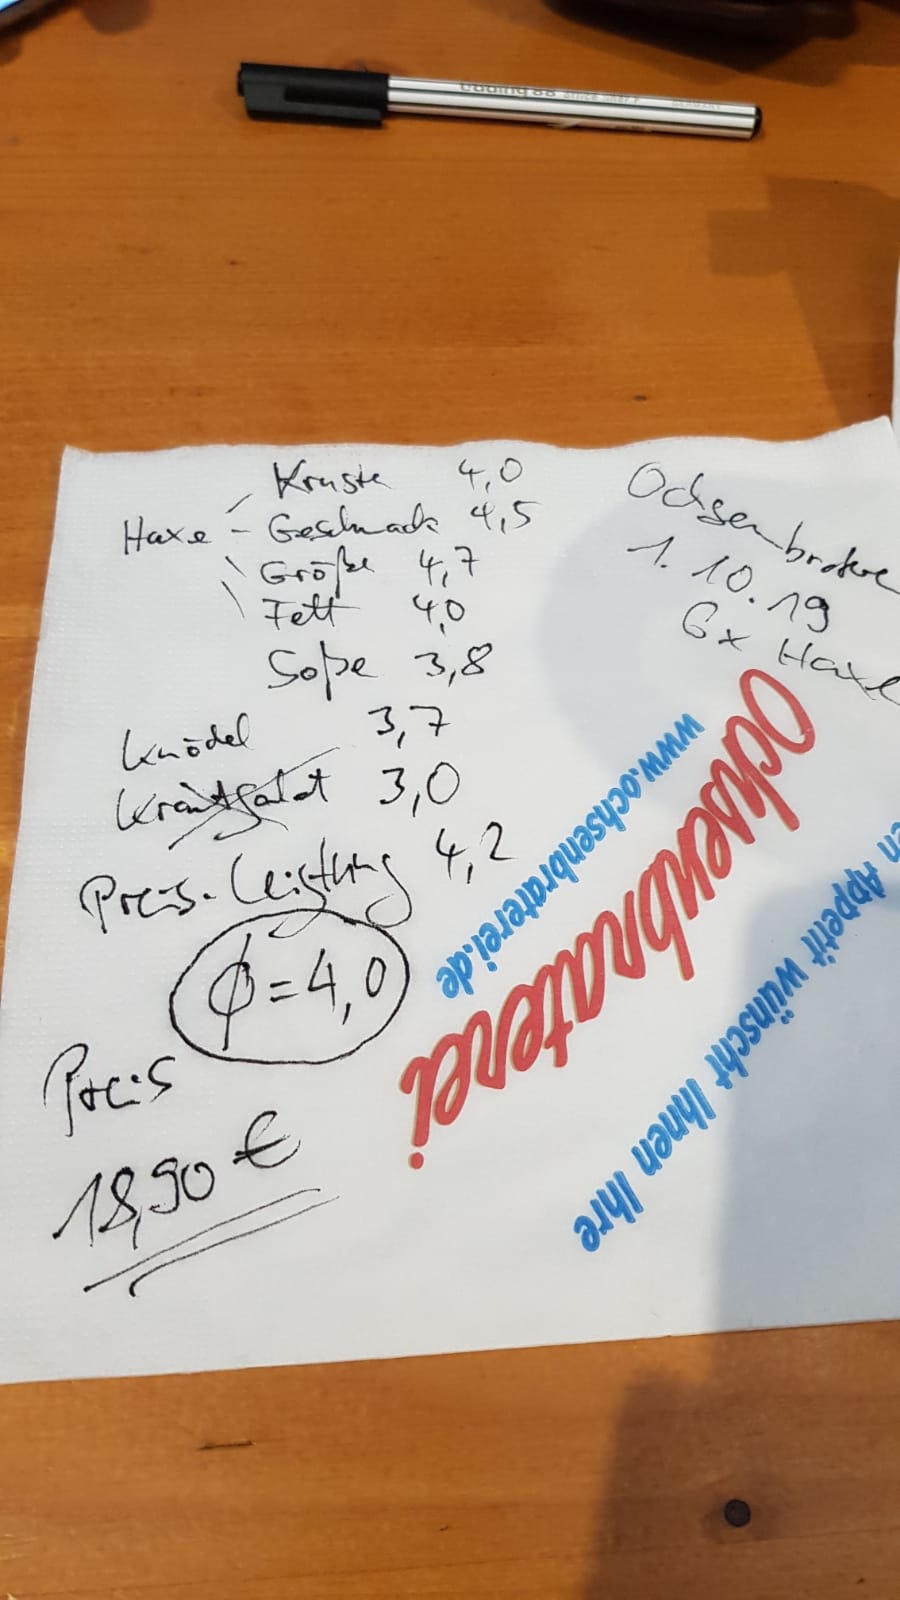 edding 88
GERMANY
Kruste 4,0
Haxe - Geschmack 4,5
Größe 4,7
Fett 4,0
Soße 3,8
Knödel 3,7
Krautsalat 3,0
Preis-Leistung 4,2
Ø = 4,0
Preis
18,90 €
Ochsenbraterei
1.10.19
6x Haxe
www.ochsenbraterei.de
Ochsenbraterei
en Appetit wünscht Ihnen Ihre